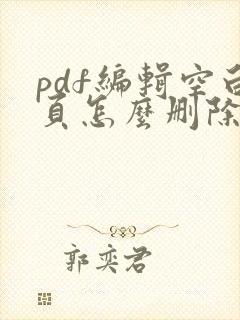 pdf編輯空白
頁怎麼刪除
郭奕君